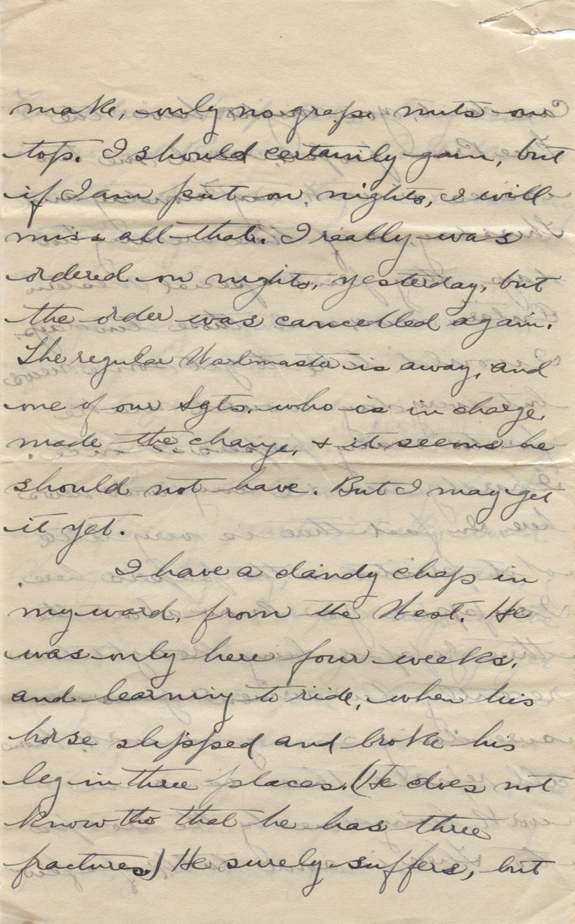 make, only no grape nuts on
top. I should certainly gain, but
if I am put on nights, I will
miss all that. I really was
ordered on nights, yesterday, but
the order was cancelled again.
The regular Wardmaster is away, and
one of our Sgts. who is in charge,
made the change, & it seems he
should not have. But I may get
it yet.
I have a dandy chap in
my ward, from the West. He
was only here four weeks,
and learning to ride, when his
horse slipped and broke his
leg in three places. (He does not
know tho that he has three
fractures.) He surely suffers, but